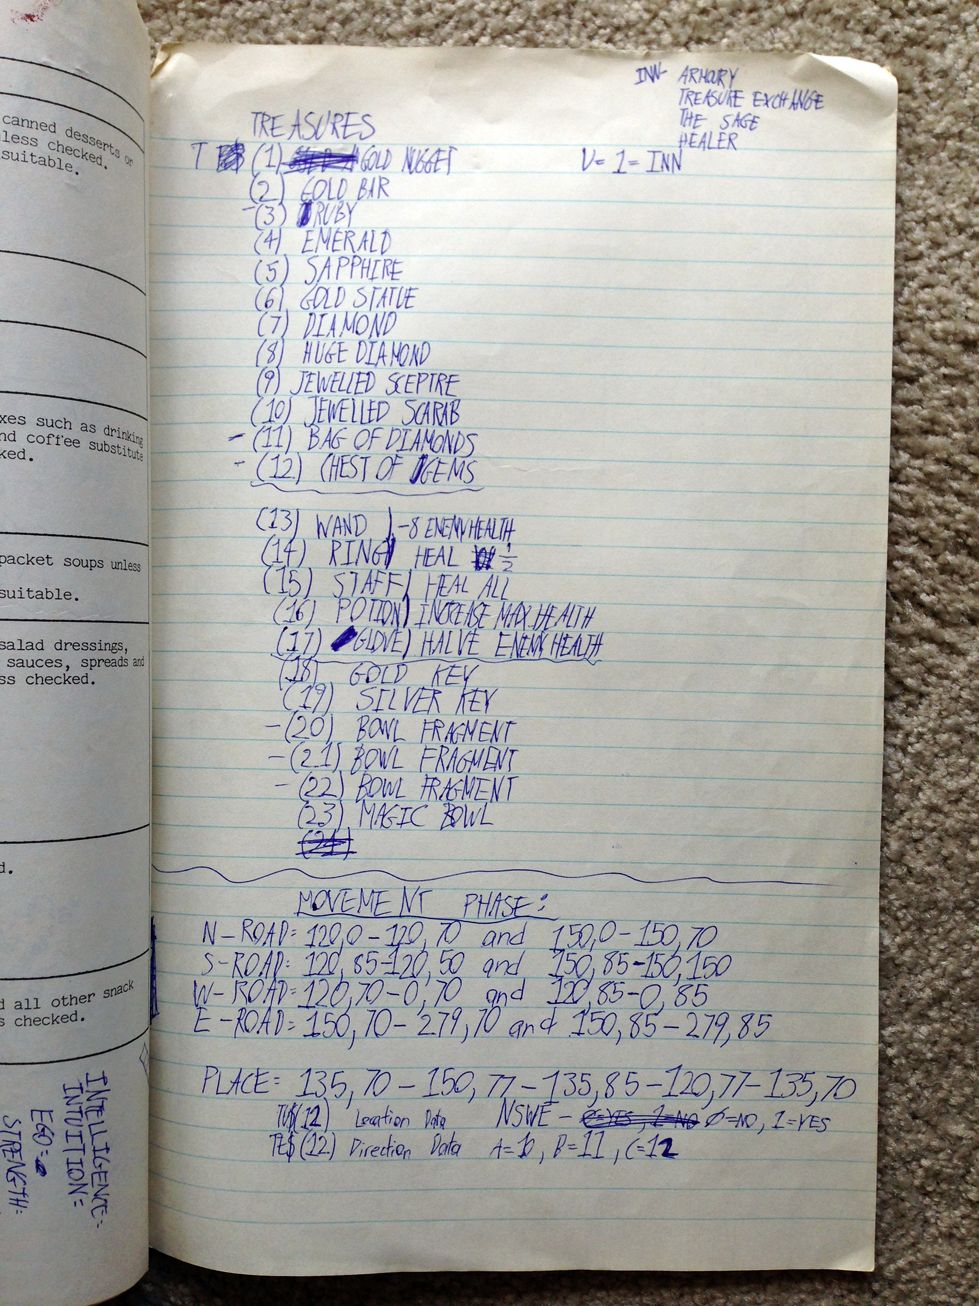 canned desserts or
less checked.
suitable.
xes such as drinking
nd coffee substitute
ked.
packet soups unless
suitable.
salad dressings,
sauces, spreads and
ss checked.
d.
d all other snack
s checked.
INTELLIGENCE=
INTUITION=
EGO=
STRENGTH=
INN- ARMOURY
TREASURE EXCHANGE
THE SAGE
HEALER
V=1=INN
TREASURES
T (1) GOLD NUGGET
(2) GOLD BAR
-(3) RUBY
(4) EMERALD
(5) SAPPHIRE
(6) GOLD STATUE
(7) DIAMOND
(8) HUGE DIAMOND
(9) JEWELLED SCEPTRE
(10) JEWELLED SCARAB
-(11) BAG OF DIAMONDS
-(12) CHEST OF GEMS
(13) WAND ) -8 ENEMY HEALTH
(14) RING) HEAL 1/2
(15) STAFF) HEAL ALL
(16) POTION) INCREASE MAX HEALTH
(17) GLOVE) HALVE ENEMY HEALTH
(18) GOLD KEY
(19) SILVER KEY
-(20) BOWL FRAGMENT
-(21) BOWL FRAGMENT
-(22) BOWL FRAGMENT
(23) MAGIC BOWL
(24)
MOVEMENT PHASE:
N-ROAD= 120,0-120,70 and 150,0-150,70
S-ROAD= 120,85-120,50 and 150,85-150,150
W-ROAD= 120,70-0,70 and 120,85-0,85
E-ROAD= 150,70-279,70 and 150,85-279,85
PLACE= 135,70-150,77-135,85-120,77-135,70
(12) Location Data NSWE - 0=YES, 1=NO Ø=NO, 1=YES
(12) Direction Data A=10, B=11, C=12